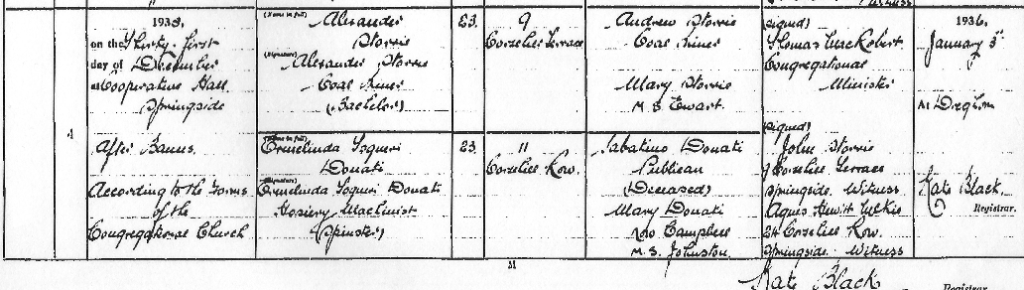 1935.
on the Thirty-first
day of December
at Cooperative Hall
Springside
After Banns.
According to the Forms
of the
Congregational Church
4
(Name in full)
Alexander
Storrie
(Signature)
Alexander Storrie
Coal Miner
(Bachelor)
(Name in full)
Ermelinda
Donati
(Signature)
Ermelinda Donati
Hosiery Machinist
(Spinster)
23.
23.
9
Corselie Terrace
11
Corselie Row.
Andrew Storrie
Coal Miner
Mary Storrie
M.S. Ewart.
Sabatino Donati
Publican
(Deceased)
Mary Donati
Campbell
M.S. Johnston.
Witness
(signed)
Thomas
Congregational
Minister
(signed)
John Storrie
9 Corselie Terrace
Springside. Witness
Agnes Hewitt Wilkie
24 Corselie Row.
Springside. Witness
1936.
January 3rd
At Dreghorn
Kate Black
Registrar.
Kate Black
Registrar